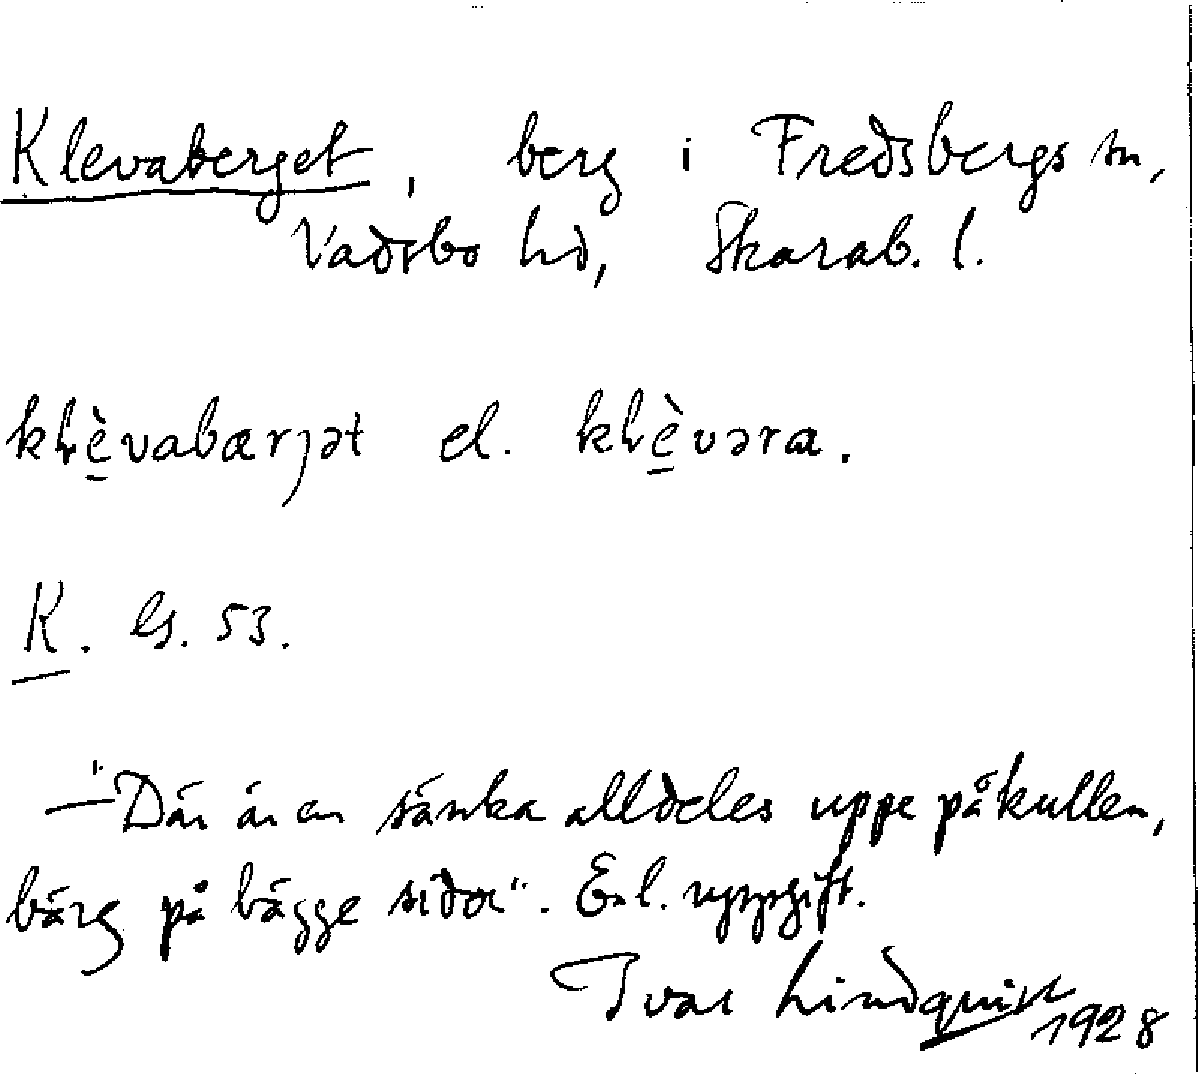 Klevaberget, berg i Fredsbergs sn,
Vadsbo hd, Skarab. l.
klɩ̀evabærjət el. klɩ̀evəra.
K. Gs. 53.
–"Där är en sänka alldeles uppe på kullen,
bärg på bägge sidor". Enl. uppgift.
Ivar Lindquist
1928